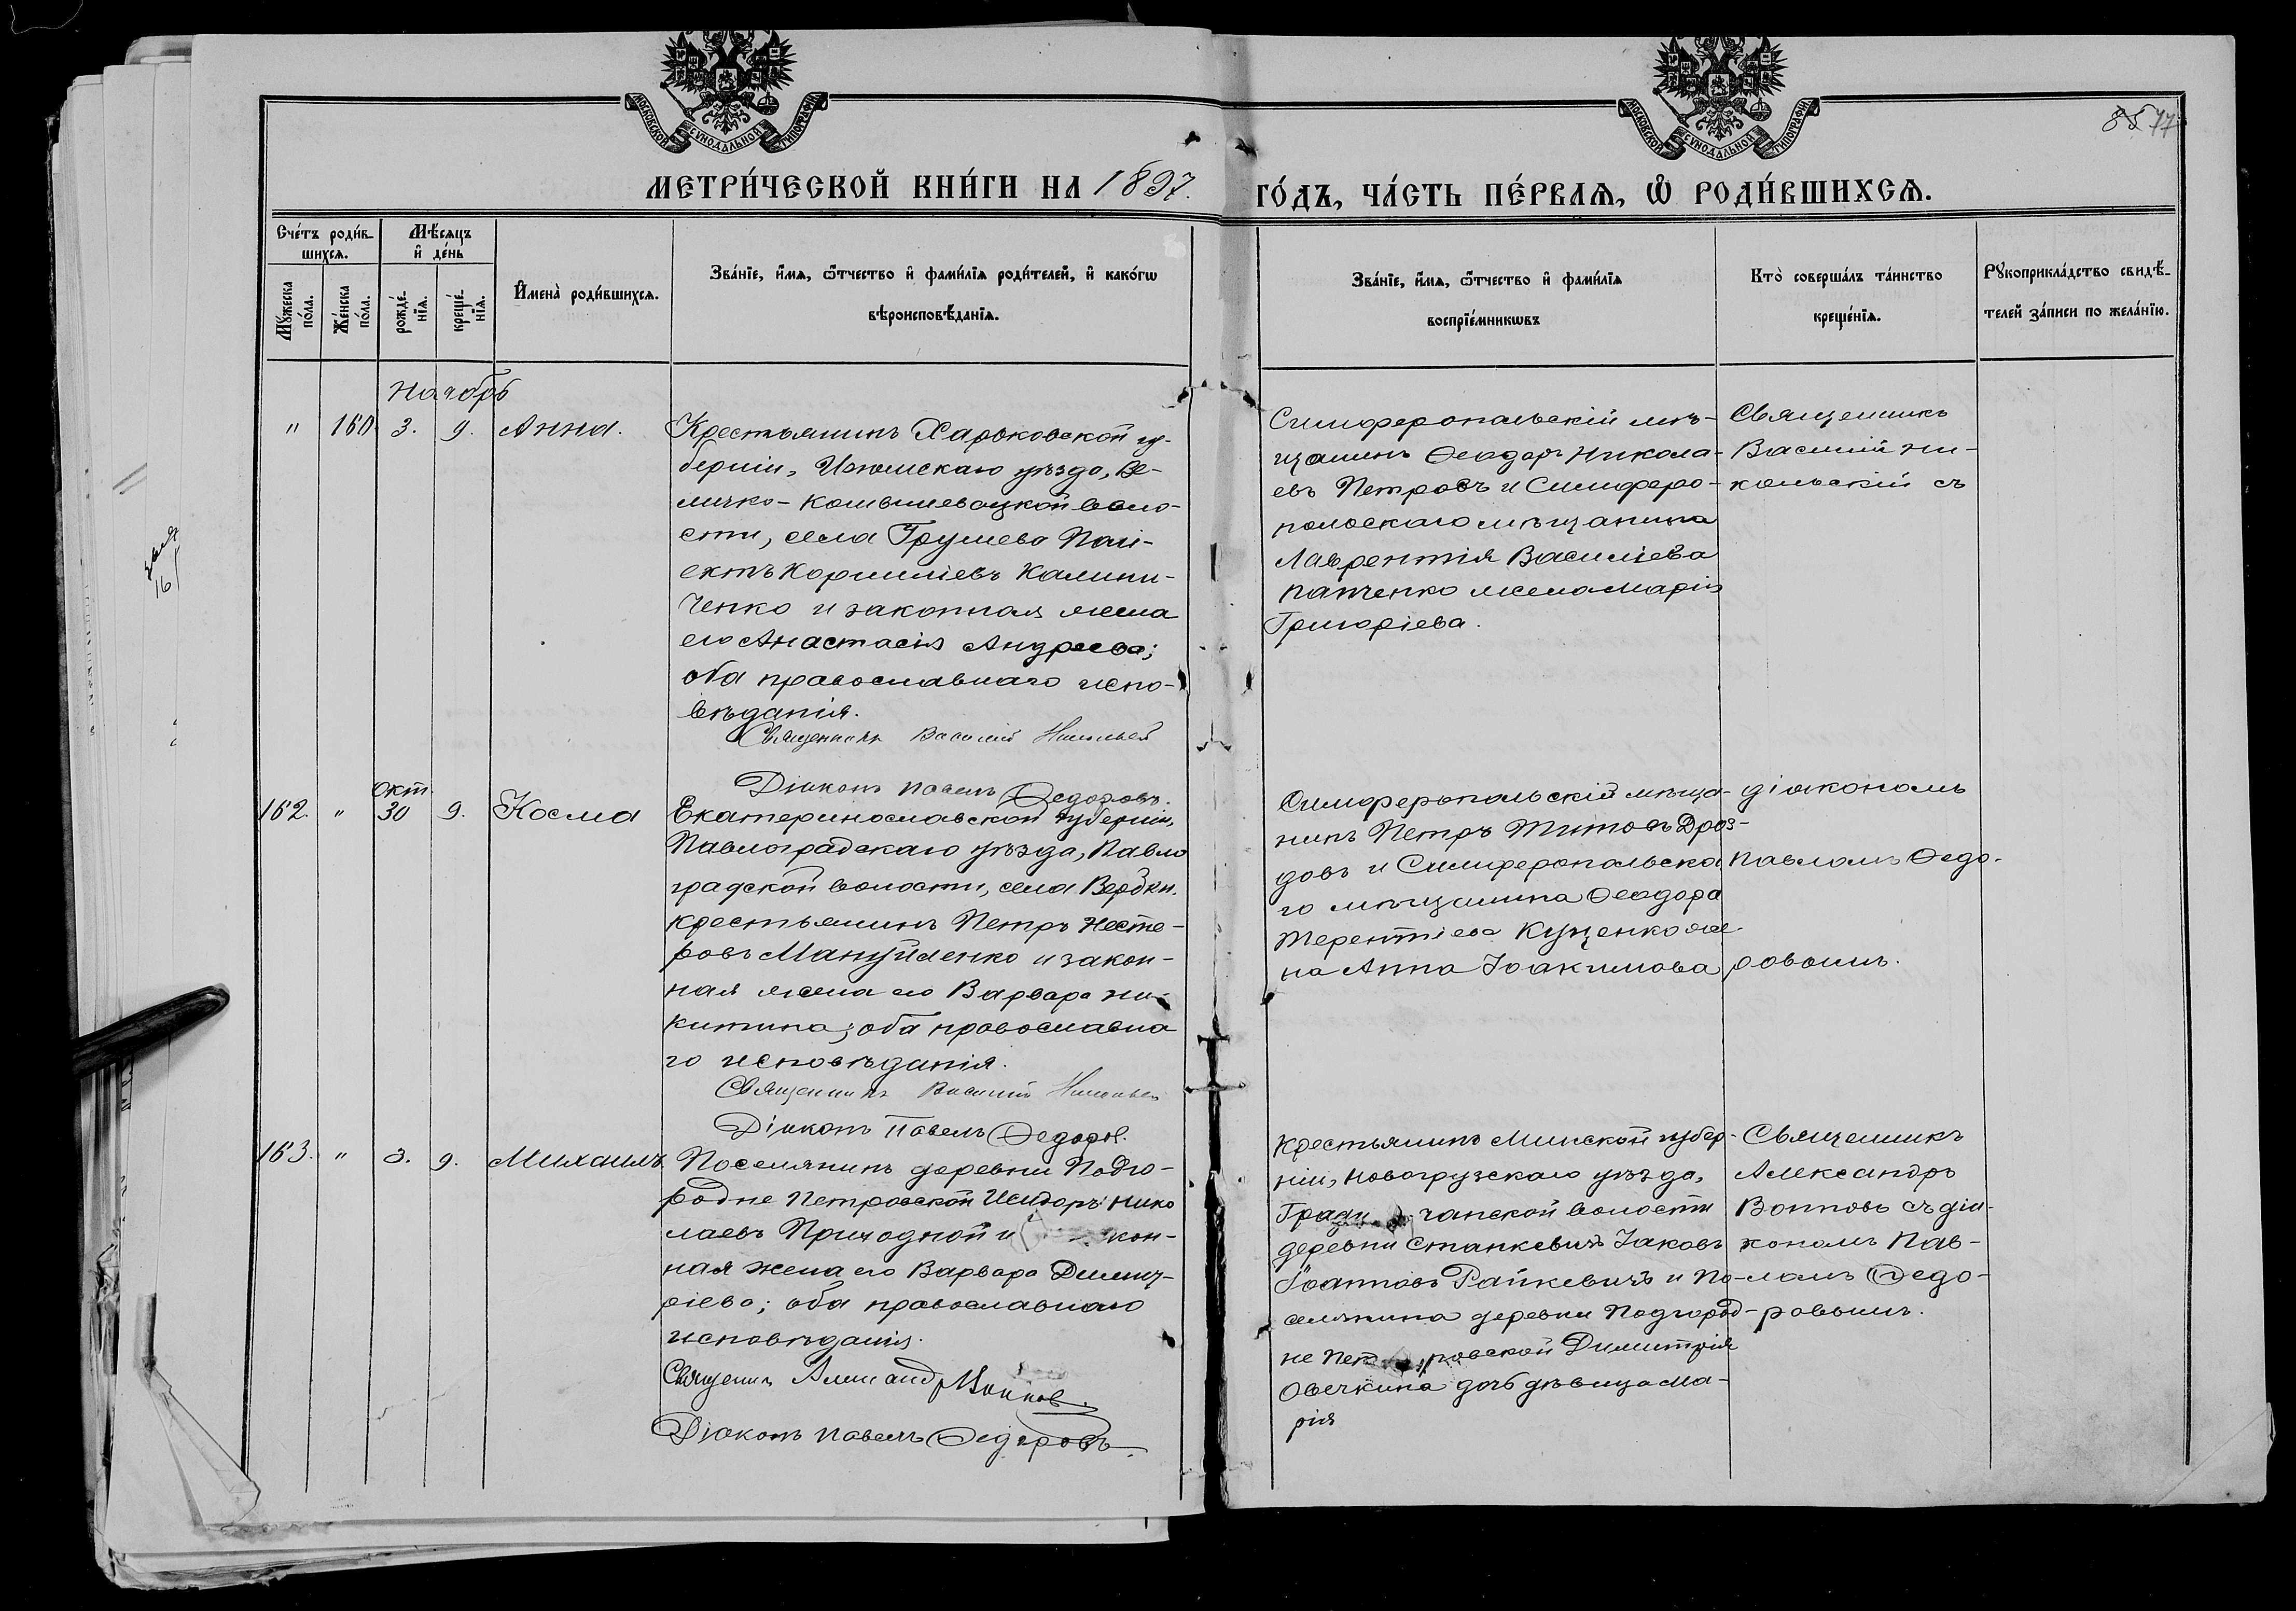 МОСКОВСКОЙ СѴНОДАЛЬНОЙ ТИПОГРАФІИ
МОСКОВСКОЙ СѴНОДАЛЬНОЙ ТИПОГРАФІИ
85 77
МЕТРИ́ЧЕСКОЙ КНИ́ГИ НА 1897.
ГО́ДЪ, ЧА́СТЬ ПЕ́РВАѦ, Ѡ҆ РОДИ́ВШИХСѦ.
Сче́тъ роди́в-
шихсѧ.
Мꙋ́жеска по́ла.
Же́нска по́ла.
Мѣ́сяцъ
и҆ де́нь
рожде́-нїѧ.
креще́-нїѧ.
И҆мена̀ роди́вшихсѧ.
Зва́нїе, и҆́мѧ, ѻ҆́тчество и҆ фами́лїѧ роди́телей, и҆ како́гѡ
вѣроисповѣ́данїѧ.
Зва́нїе, и҆́мѧ, ѻ҆́тчество и҆ фами́лїѧ
воспрїе́мникѡвъ
Кто̀ соверша́лъ та́инство
креще́нїѧ.
Рꙋкоприкла́дство свидѣ́-
телей за́писи по жела́нїю.
Ноябрь
" 160 3. 9. Анна.
Крестьянинъ Харьковской гу-
берніи, Изюмскаго уѣзда, Ве-
личко-
сти, села Грушева
Корниліевъ Калини-
ченко и законная жена
его Анастасія Андреева;
оба православнаго испо-
вѣданія.
Священникъ Василий Никольскій
Діаконъ Павелъ Федоровъ.
Симферопольскій мѣ-
щанинъ Феодоръ Никола-
евъ Петровъ и Симферо-
польскаго мѣщанина
Лаврентія Василіева
Панченко жена Марія
Григоріева.
Священникъ
Василій Ни-
кольскій съ
162. " Окт. 30 9. Косма
Екатеринославской губерніи,
Павлоградскаго уѣзда, Павло
градской волости, села Вербки
крестьянинъ Петръ Несте-
ровъ Мануйленко и закон-
ная жена его Варвара Ни-
китина; оба православна
го исповѣданія.
Священникъ Василій Никольскій
Діаконъ Павелъ Федоров.
Симферопольскій мѣща-
нинъ Петръ Титовъ Дроз-
довъ и Симферопольска
го мѣщанина Феодора
Терентіева Куценко же-
на Анна Іоакимова
діакономъ
Павломъ Федо-
ровымъ.
163. " 3. 9. Михаилъ
Поселянинъ деревни Подго-
родне Петровской Исидоръ Нико
лаевъ Приходной и кон-
ная жена его Варвара Димит-
ріева; оба православнаго
исповѣданія.
Священникъ Александръ Войновъ.
Діаконъ Павелъ Федоровъ.
Крестьянинъ Минской губер-
ніи, Новогрузскаго уѣзда,
чанской волости
деревни Станкевичъ Іаковъ
Іоанновъ Райкевичъ и По-
селянина деревни Подгород-
не Петровской Димитрія
Овечкина дочь дѣвица Ма-
рія
Священникъ
Александръ
Войновъ съ діа-
кономъ Пав-
ломъ Федо-
ровымъ.